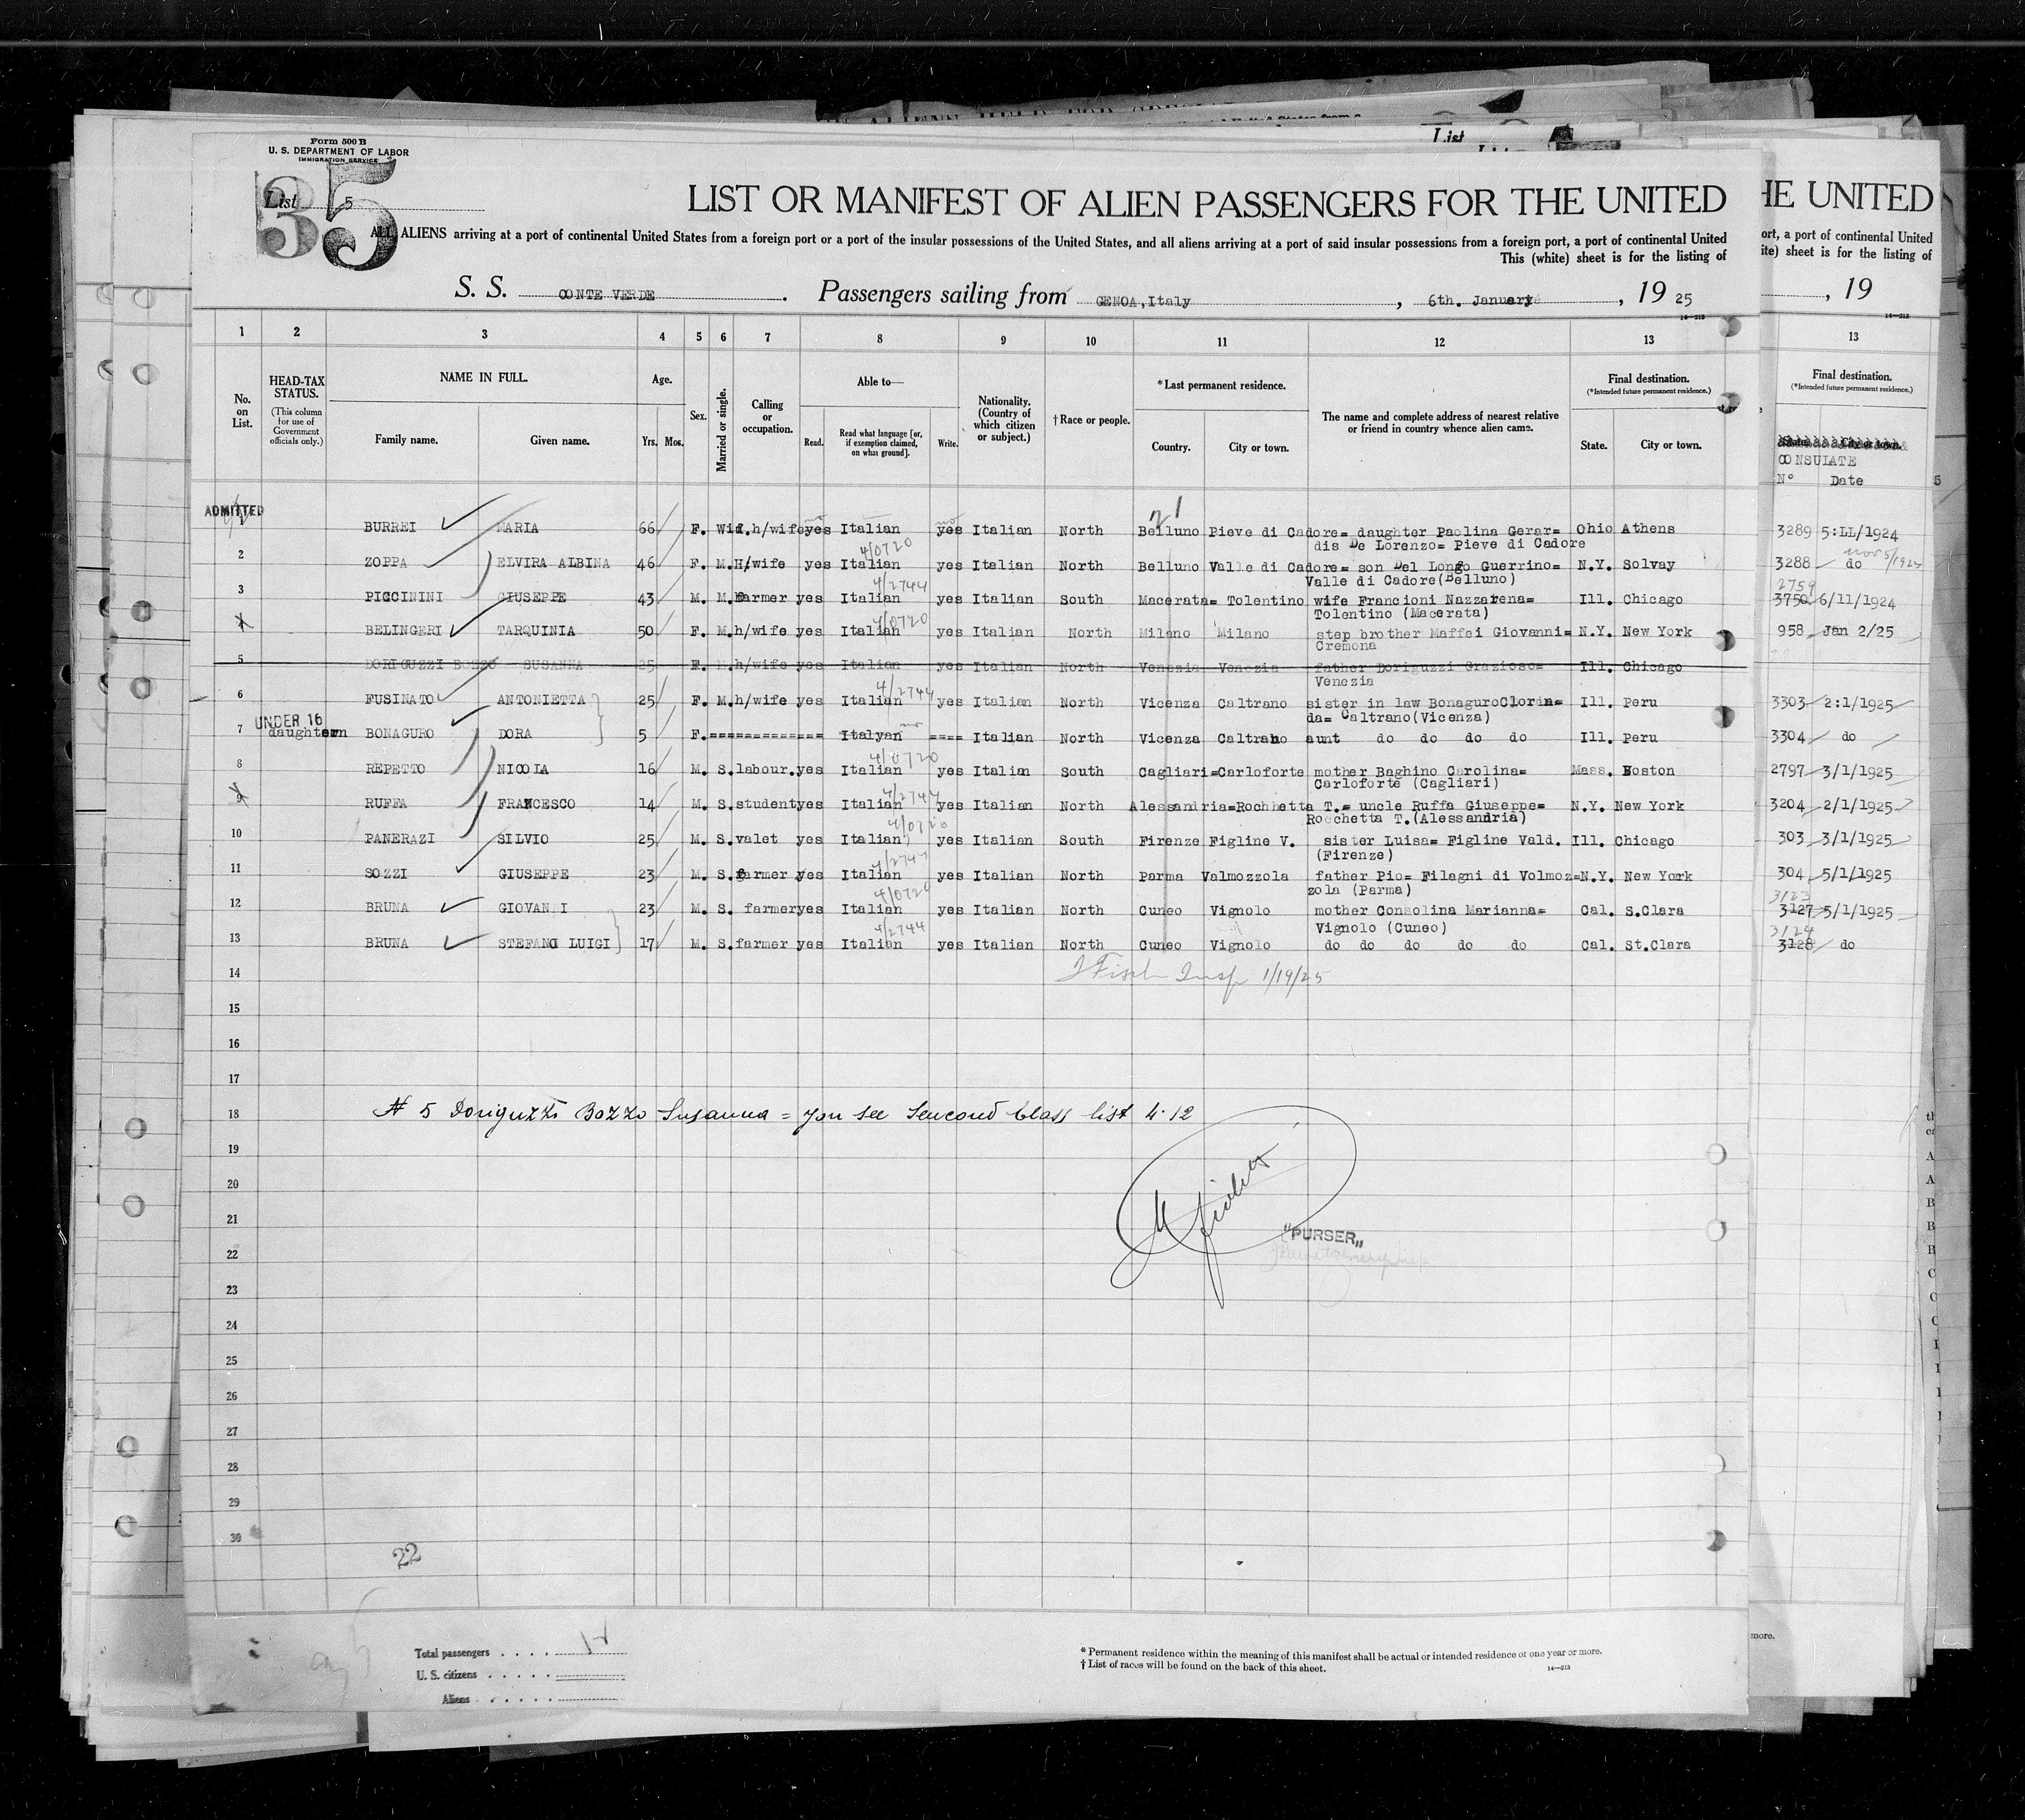 Form 500 B
U. S. DEPARTMENT OF LABOR
IMMIGRATION SERVICE
List 5
35
List
LIST OR MANIFEST OF ALIEN PASSENGERS FOR THE UNITED
HE UNITED
ALL ALIENS arriving at a port of continental United States from a foreign port or a port of the insular possessions of the United States, and all aliens arriving at a port of said insular possessions from a foreign port, a port of continental United
ort, a port of continental United
This (white) sheet is for the listing of
ite) sheet is for the listing of
S. S. CONTE VERDE. Passengers sailing from GENOA, Italy, 6th. January, 19 25
, 19
14—213
1 2 3 4 5 6 7 8 9 10 11 12 13
13
No. on List.
HEAD-TAX STATUS.
(This column for use of Government officials only.)
NAME IN FULL.
Family name. Given name.
Age.
Yrs. Mos.
Sex.
Married or single.
Calling or occupation.
Able to—
Read. Read what language [or, if exemption claimed, on what ground]. Write.
Nationality. (Country of which citizen or subject.)
† Race or people.
*Last permanent residence.
Country. City or town.
The name and complete address of nearest relative or friend in country whence alien came.
Final destination.
(*Intended future permanent residence.)
State. City or town.
Final destination.
(*Intended future permanent residence.)
CONSULATE
N° Date
ADMITTED
21
1 BURREI MARIA 66 F. Wid. h/wife yes no Italian yes no Italian North Belluno Pieve di Cadore= daughter Paolina Gerar= Ohio Athens 3289 5:LL/1924
dis De Lorenzo= Pieve di Cadore
4/0720
2 ZOPPA ELVIRA ALBINA 46 F. M. H/wife yes Italian yes Italian North Belluno Valle di Cadore= son Del Longo Guerrino= N.Y. Solvay 3288 do
Valle di Cadore(Belluno)
4/2744 2759
3 PICCININI GIUSEPPE 43 M. M. farmer yes Italian yes Italian South Macerata= Tolentino wife Francioni Nazzarena= Ill. Chicago 3750 6/11/1924
Tolentino (Macerata)
4/0720
4 BELINGERI TARQUINIA 50 F. M. h/wife yes Italian yes Italian North Milano Milano step brother Maffei Giovanni= N.Y. New York 958 Jan 2/25
Cremona
5 DORIGUZZI BOZZO SUSANNA 25 F. M. h/wife yes Italian yes Italian North Venezia Venezia father Doriguzzi Grazioso= Ill. Chicago
Venezia
4/2744
6 FUSINATO ANTONIETTA 25 F. M. h/wife yes Italian yes Italian North Vicenza Caltrano sister in law BonaguroClorin= Ill. Peru 3303 2:1/1925
da= Caltrano(Vicenza)
UNDER 16
daughter
7 BONAGURO DORA 5 F.============= Italyan no ==== Italian North Vicenza Caltrano aunt do do do do Ill. Peru 3304 do
4/0720
8 REPETTO NICOLA 16 M. S. labour. yes Italian yes Italian South Cagliari=Carloforte mother Baghino Carolina= Mass. Boston 2797 3/1/1925
Carloforte (Cagliari)
4/2744
9 RUFFA FRANCESCO 14 M. S. student yes Italian yes Italian North Alessandria=Rochhetta T.= uncle Ruffa Giuseppe= N.Y. New York 3204 2/1/1925
Rocchetta T.(Alessandria)
4/0720
10 PANERAZI SILVIO 25 M. S. valet yes Italian yes Italian South Firenze Figline V. sister Luisa= Figline Vald. Ill. Chicago 303 3/1/1925
(Firenze)
4/2744
11 SOZZI GIUSEPPE 23 M. S. farmer yes Italian yes Italian North Parma Valmozzola father Pio= Filagni di Volmoz= N.Y. New York 304 5/1/1925
zola (Parma)
4/0720 3123
12 BRUNA GIOVANNI 23 M. S. farmer yes Italian yes Italian North Cuneo Vignolo mother Consolina Marianna= Cal. S.Clara 3127 5/1/1925
Vignolo (Cuneo)
4/2744 3124
13 BRUNA STEFANO LUIGI 17 M. S. farmer yes Italian yes Italian North Cuneo Vignolo do do do do do Cal. St.Clara 3128 do
14 Insp 1/19/25
15
16
17
18 N 5 Doriguzzi Bozzo Susanna = you see Seucond Class list 4.12
19
20
21
"PURSER„
22
23
24
25
26
27
28
29
30
22
Total passengers 12
U. S. citizens
Aliens
* Permanent residence within the meaning of this manifest shall be actual or intended residence of one year or more.
† List of races will be found on the back of this sheet.
14—213
more.